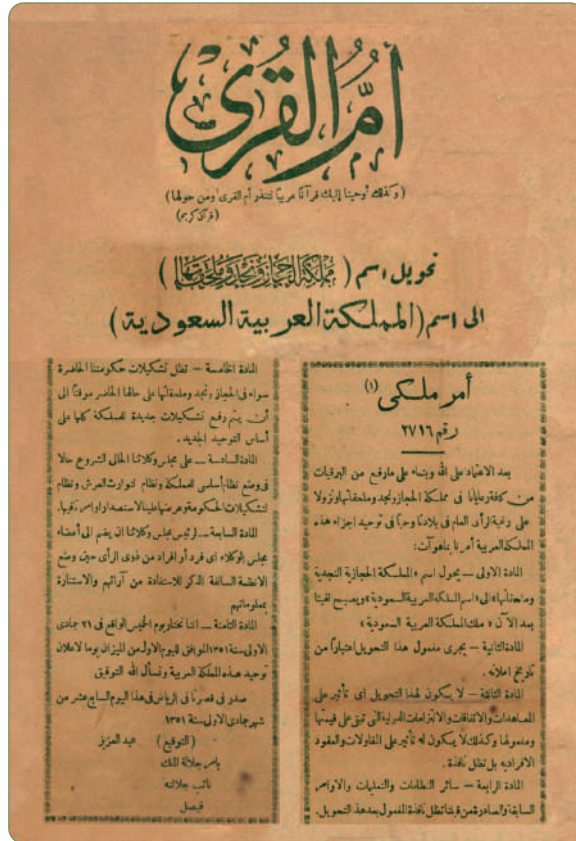 أم القرى
(وكذلك أوحينا إليك قرآنًا عربيًا لتنذر أم القرى ومن حولها)
(قرآن كريم)
تحويل اسم (مملكة الحجاز ونجد وملحقاتها)
الى اسم (المملكة العربية السعودية)
أمر ملكي (١)
رقم ٢٧١٦
بعد الاعتماد على الله وبناء على ما وقع من البرقيات
من كافة رعايانا فى مملكة الحجاز ونجد وملحقاتها ونزولا
على رغبة الرأى العام فى بلادنا وحبًا فى توحيد اجزاء هذه
المملكة العربية أمرنا بما هو آت:
المادة الاولى – يحول اسم «المملكة الحجازية النجدية
وملحقاتها» الى «اسم المملكة العربية السعودية» ويصبح لقبنا
بعد الآن «ملك المملكة العربية السعودية»
المادة الثانية – يجرى مفعول هذا التحويل اعتبارًا من
تاريخ اعلانه.
المادة الثالثة – لا يكون لهذا التحويل اى تأثير على
المعاهدات والاتفاقات والالتزامات الدولية التى تبقى على قيمتها
ومفعولها وكذلك لا يكون له تأثير على المقاولات والعقود
الافرادية بل تظل نافذة.
المادة الرابعة – سائر النظامات والتعليمات والاوامر
السابقة والصادرة من قبلنا تظل نافذة المفعول بعد هذا التحويل.
المادة الخامسة – تظل تشكيلات حكومتنا الحاضرة
سواء فى الحجاز ونجد وملحقاتها على حالها الحاضر موقتًا الى
أن يتم وضع تشكيلات جديدة للمملكة كلها على
أساس التوحيد الجديد.
المادة السادسة – على مجلس وكلائنا الحالى الشروع حالا
فى وضع نظام أساسى للمملكة ونظام لتوارث العرش ونظام
لتشكيلات الحكومة وعرضها علينا لاستصدار اوامرنا فيها.
المادة السابعة – لرئيس مجلس وكلائنا ان يضم الى أعضاء
مجلس الوكلاء اى فرد أو افراد من ذوى الرأى حين وضع
الانظمة السالفة الذكر للاستفادة من آرائهم والاستنارة
بمعلوماتهم
المادة الثامنة – اننا نختار يوم الخميس الواقع فى ٢١ جمادى
الاولى سنة ١٣٥١ الموافق لليوم الاول من الميزان يوما لاعلان
توحيد هذه المملكة العربية ونسأل الله التوفيق
صدر فى قصرنا فى الرياض فى هذا اليوم السابع عشر من
شهر جمادى الاولى سنة ١٣٥١
(التوقيع) عبد العزيز
بامر جلالة الملك
نائب جلالته
فيصل